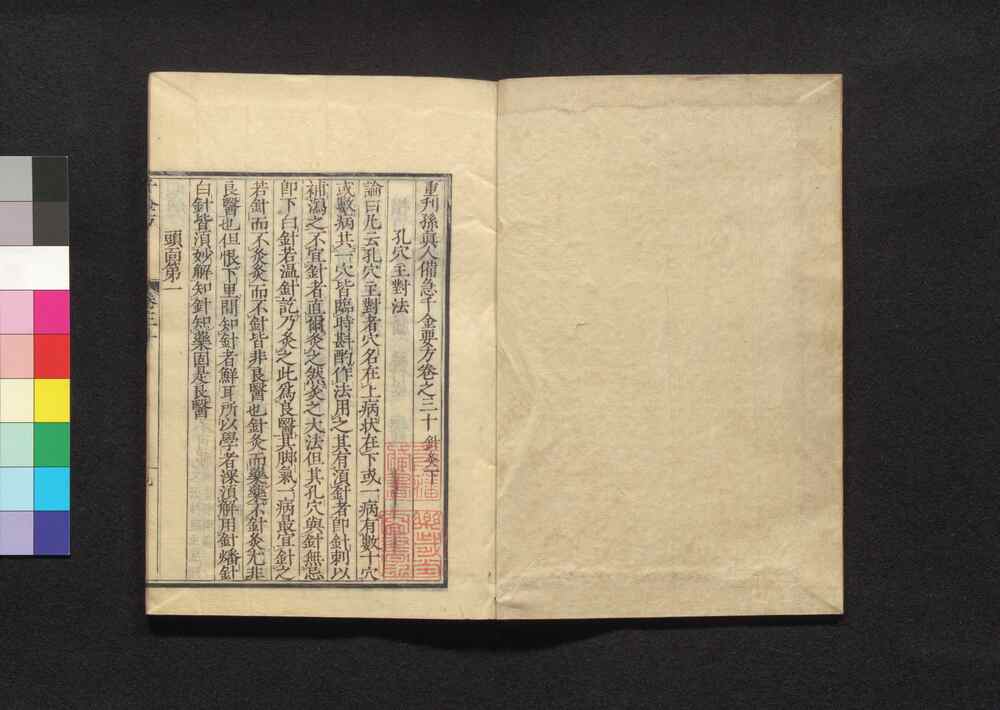 重刊孫真人備急千金要方卷之三十 針灸下
孔穴主對法
論曰凡云孔穴主對者穴名在上病狀在下或一病有數十穴
或數病共一穴皆臨時斟酌作法用之其有須針者即針刺以
補瀉之不宜針者直爾灸之然灸之大法但其孔穴與針無忌
即下白針若溫針訖乃灸之此為良醫其脚氣一病最宜針之
若針而不灸灸而不針皆非良醫也針灸而藥藥不針灸尤非
良醫也但恨下里間知針者鮮耳所以學者深須解用針燔針
白針皆須妙解知針知藥固是良醫
頭面第一